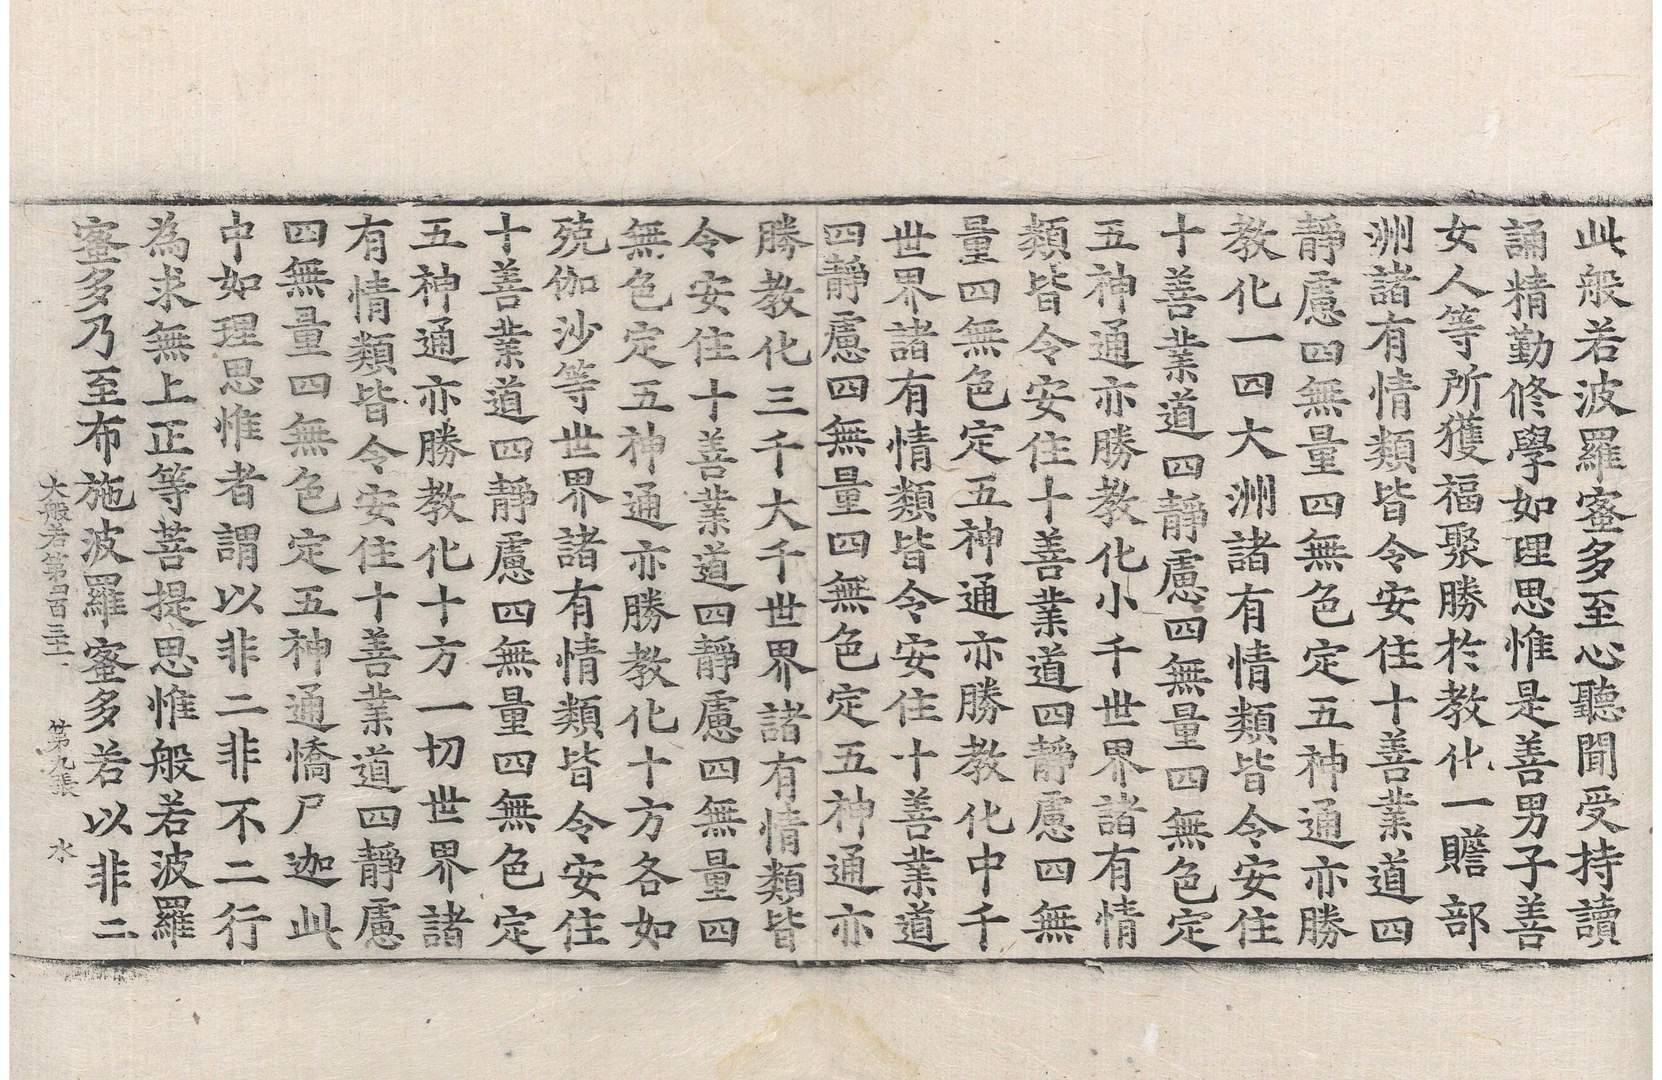 此般若波羅蜜多至心聽聞受持讀
誦精勤修學如理思惟是善男子善
女人等所獲福聚勝於教化一贍部
洲諸有情類皆令安住十善業道四
靜慮四無量四無色定五神通亦勝
教化一四大洲諸有情類皆令安住
十善業道四靜慮四無量四無色定
五神通亦勝教化小千世界諸有情
類皆令安住十善業道四靜慮四無
量四無色定五神通亦勝教化中千
世界諸有情類皆令安住十善業道
四靜慮四無量四無色定五神通亦
勝教化三千大千世界諸有情類皆
令安住十善業道四靜慮四無量四
無色定五神通亦勝教化十方各如
殑伽沙等世界諸有情類皆令安住
十善業道四靜慮四無量四無色定
五神通亦勝教化十方一切世界諸
有情類皆令安住十善業道四靜慮
四無量四無色定五神通憍尸迦此
中如理思惟者謂以非二非不二行
為求無上正等菩提思惟般若波羅
蜜多乃至布施波羅蜜多若以非二
大般若第四百三十一 第九張 水